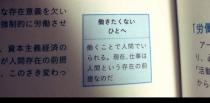 な存在意義を欠い
強制的に労働させ
資本主義経済の
が人間存在の前提
このさき変わっ
働きたくない
ひとへ
働くことで人間でい
られる。現在、仕事は
人間という存在の前
提なのだ
「労働
アー